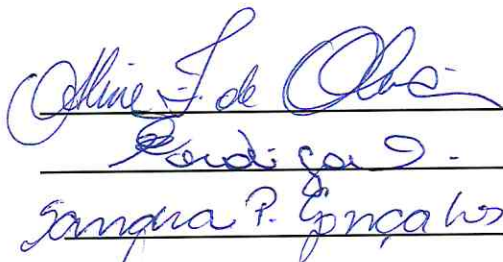 Aline F. de Oliveira
Sandra P. Gonçalves